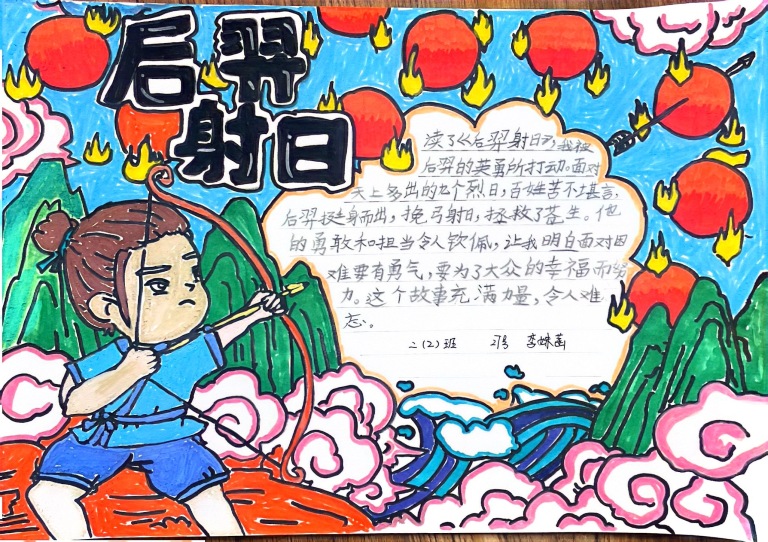 后羿
射日
读了《后羿射日》,我被
后羿的英勇所打动。面对
天上多出的九个烈日,百姓苦不堪言,
后羿挺身而出,挽弓射日,拯救了苍生。他
的勇敢和担当令人钦佩,让我明白面对困
难要有勇气,要为了大众的幸福而努
力。这个故事充满力量,令人难
忘。
二(2)班 李姝菡